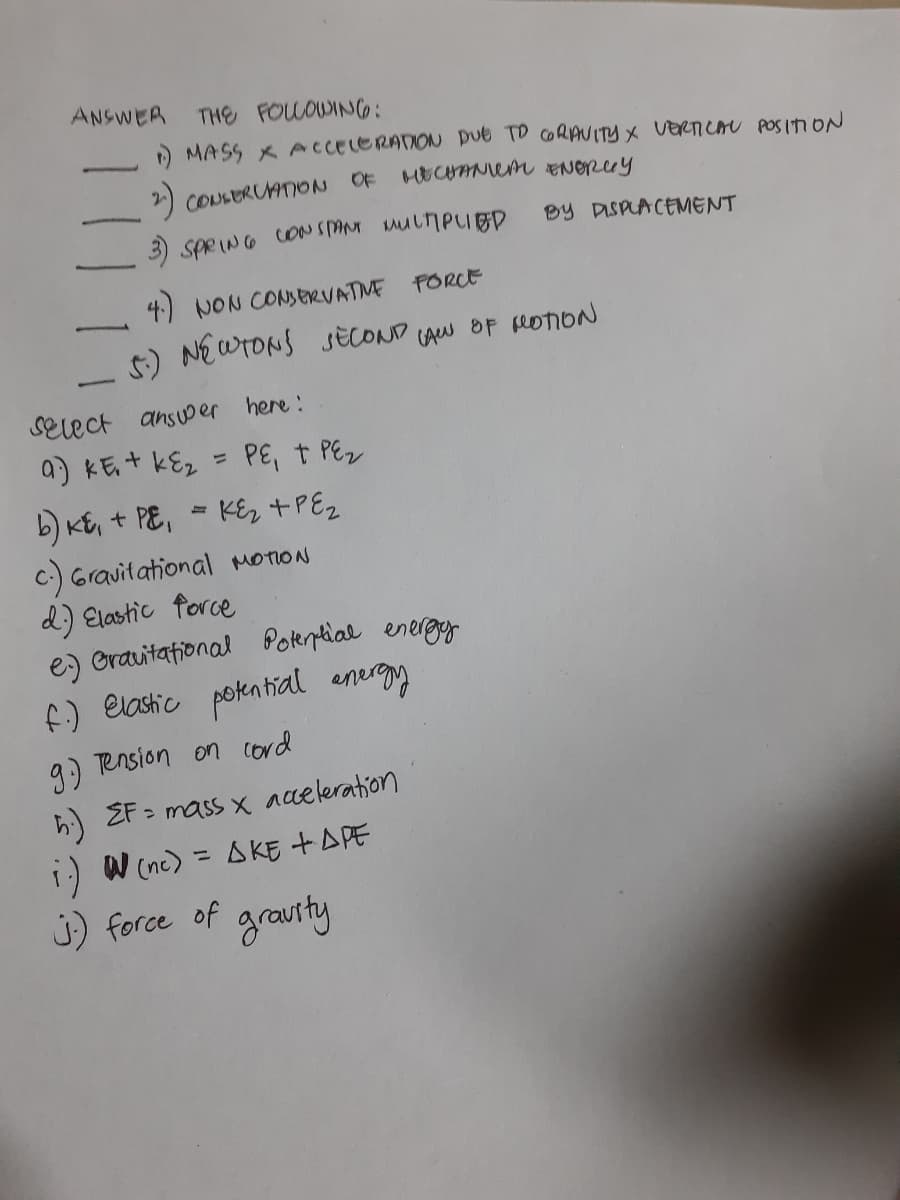 ANSWER THE FOLLOWING:
___ 1.) MASS X ACCELERATION DUE TO GRAVITY X VERTICAL POSITION
___ 2.) CONSERVATION OF MECHANICAL ENERGY
___ 3) SPRING CONSTANT MULTIPLIED BY DISPLACEMENT
___ 4.) NON CONSERVATIVE FORCE
___ 5.) NEWTONS SECOND LAW OF MOTION
select answer here:
a.) KE₁ + KE₂ = PE₁ + PE₂
b) KE₁ + PE₁ = KE₂ + PE₂
c.) Gravitational MOTION
d.) Elastic force
e.) Gravitational Potential energy
f.) Elastic potential energy
g.) Tension on cord
h.) ΣF = mass x acceleration
i.) W (nc) = ΔKE + ΔPE
j.) force of gravity